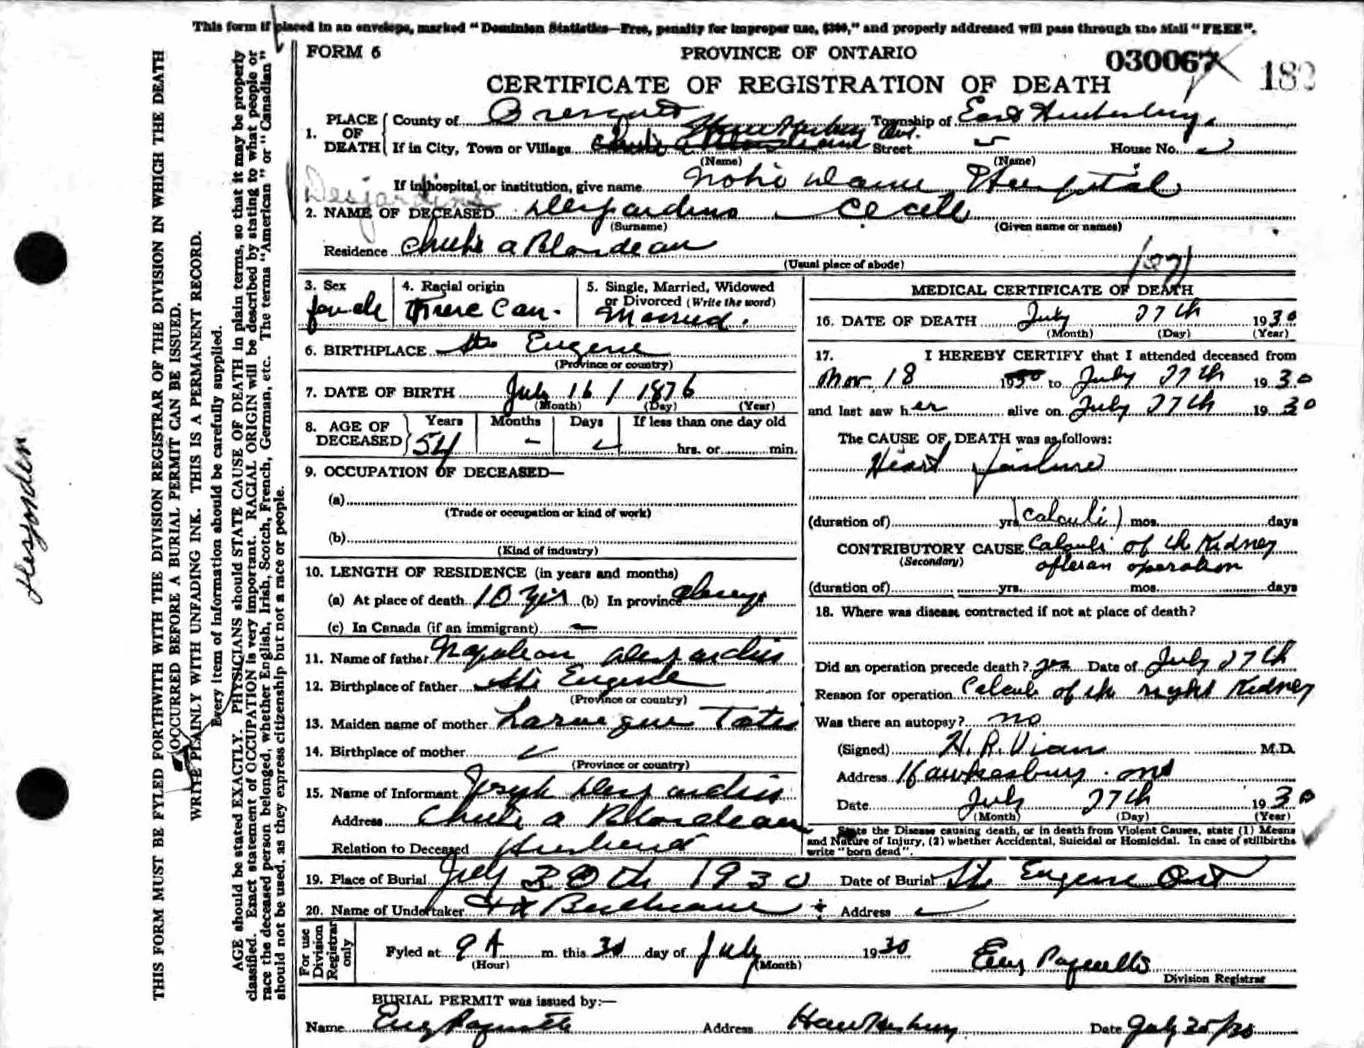 This form if placed in an envelope, marked "Dominion Statistics—Free, penalty for improper use, $300," and properly addressed will pass through the Mail "FREE".
FORM 6 PROVINCE OF ONTARIO 030067 182
CERTIFICATE OF REGISTRATION OF DEATH
1. PLACE OF DEATH { County of Prescott Township of East Hawkesbury
Hawkesbury Ont.
If in City, Town or Village Street House No.
(Name) (Name)
If in hospital or institution, give name Notre Dame Hospital
Desjardins
2. NAME OF DECEASED Desjardins Cecile
(Surname) (Given name or names)
Residence Chute a Blondeau
(Usual place of abode)
3. Sex female
4. Racial origin
5. Single, Married, Widowed or Divorced (Write the word) Married.
6. BIRTHPLACE Ste Eugene
(Province or country)
7. DATE OF BIRTH July 16 / 1876
(Month) (Day) (Year)
8. AGE OF DECEASED Years Months Days If less than one day old
54 – hrs. or min.
9. OCCUPATION OF DECEASED—
(a)
(Trade or occupation or kind of work)
(b)
(Kind of industry)
10. LENGTH OF RESIDENCE (in years and months)
(a) At place of death 10 yrs (b) In province always
(c) In Canada (if an immigrant) —
11. Name of father Napoleon Desjardins
12. Birthplace of father Ste Eugene
(Province or country)
13. Maiden name of mother
14. Birthplace of mother
(Province or country)
15. Name of Informant Joseph Desjardins
Address Chute a Blondeau
Relation to Deceased Husband
MEDICAL CERTIFICATE OF DEATH
16. DATE OF DEATH July 27th 1930
(Month) (Day) (Year)
17. I HEREBY CERTIFY that I attended deceased from
Nov. 18 to July 27th 1930
and last saw her alive on July 27th 1930
The CAUSE OF DEATH was as follows:
Heart failure
(duration of) yrs (Calculi) mos. days
CONTRIBUTORY CAUSE Calculi of the Kidney
(Secondary) after an operation
(duration of) yrs. mos. days
18. Where was disease contracted if not at place of death?
Did an operation precede death? yes Date of July 27th
Reason for operation Calculi of the right Kidney
Was there an autopsy? no
(Signed) M.D.
Address Hawkesbury Ont
Date July 27th 1930
(Month) (Day) (Year)
State the Disease causing death, or in death from Violent Causes, state (1) Means
and Nature of Injury, (2) whether Accidental, Suicidal or Homicidal. In case of stillbirths
write "born dead".
19. Place of Burial July 30th 1930 Date of Burial St. Eugene Ont
20. Name of Undertaker Address
For use Division Registrar only
Fyled at 9 A m. this 30 day of July 1930
(Hour) (Month)
Division Registrar
BURIAL PERMIT was issued by:—
Name Address Hawkesbury Date
THIS FORM MUST BE FYLED FORTHWITH WITH THE DIVISION REGISTRAR OF THE DIVISION IN WHICH THE DEATH
OCCURRED BEFORE A BURIAL PERMIT CAN BE ISSUED.
WRITE PLAINLY WITH UNFADING INK. THIS IS A PERMANENT RECORD.
Every item of information should be carefully supplied.
AGE should be stated EXACTLY. PHYSICIANS should STATE CAUSE OF DEATH in plain terms, so that it may be properly
classified. Exact statement of OCCUPATION is very important. RACIAL ORIGIN will be described by stating to what people or
race the deceased person belonged, whether English, Irish, Scotch, French, German, etc. The terms "American" or "Canadian"
should not be used, as they express citizenship but not a race or people.
Desjardin